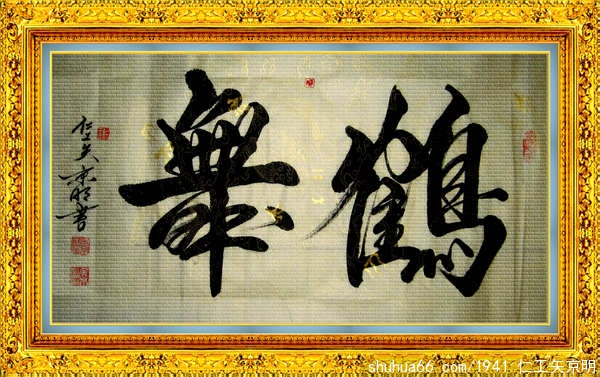 鶴舞
仁工矢京明書
shuhua66.com/1941 仁工矢京明